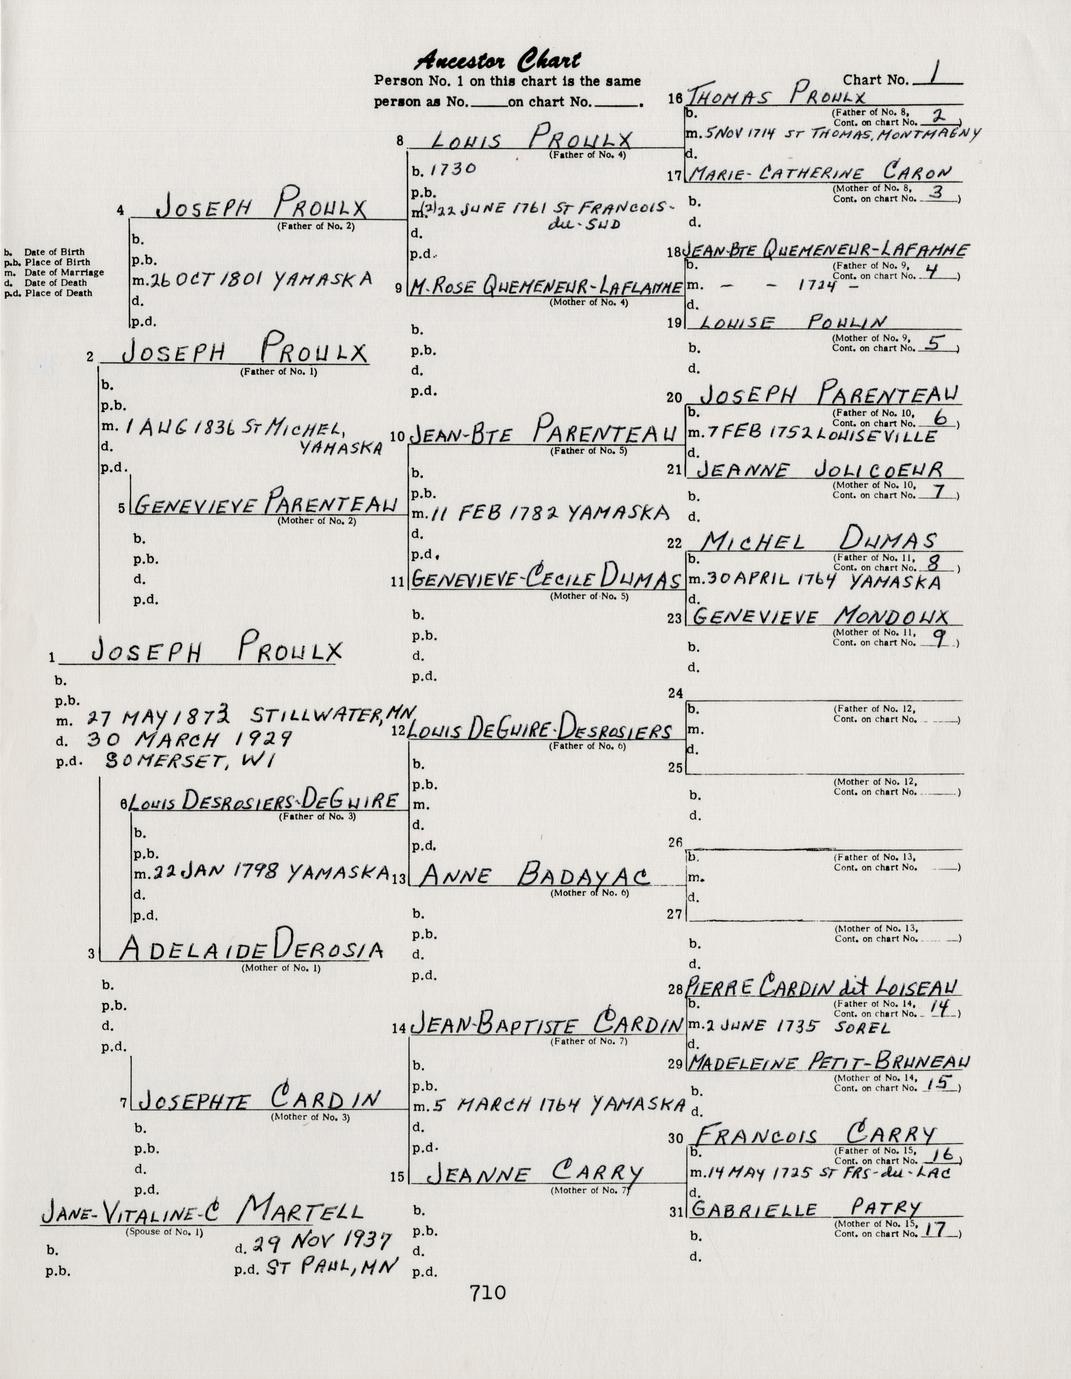 Ancestor Chart
Person No. 1 on this chart is the same
person as No. ____ on chart No. ____.
Chart No. 1
b. Date of Birth
p.b. Place of Birth
m. Date of Marriage
d. Date of Death
p.d. Place of Death
1 JOSEPH PROULX
b.
p.b.
m. 27 MAY 1873 STILLWATER, MN
d. 30 MARCH 1929
p.d. SOMERSET, WI
JANE-VITALINE-C MARTELL
(Spouse of No. 1)
b.
p.b.
d. 29 NOV 1937
p.d. ST PAUL, MN
2 JOSEPH PROULX
(Father of No. 1)
b.
p.b.
m. 1 AUG 1836 ST MICHEL,
YAMASKA
d.
p.d.
3 ADELAIDE DEROSIA
(Mother of No. 1)
b.
p.b.
d.
p.d.
4 JOSEPH PROULX
(Father of No. 2)
b.
p.b.
m. 26 OCT 1801 YAMASKA
d.
p.d.
5 GENEVIEVE PARENTEAU
(Mother of No. 2)
b.
p.b.
d.
p.d.
6 LOUIS DESROSIERS-DEGUIRE
(Father of No. 3)
b.
p.b.
m. 22 JAN 1798 YAMASKA
d.
p.d.
7 JOSEPHTE CARDIN
(Mother of No. 3)
b.
p.b.
d.
p.d.
8 LOUIS PROULX
(Father of No. 4)
b. 1730
p.b.
m. (2) 22 JUNE 1761 ST FRANCOIS-
du-SUD
d.
p.d.
9 M. ROSE QUEMENEUR-LAFLAMME
(Mother of No. 4)
b.
p.b.
d.
p.d.
10 JEAN-BTE PARENTEAU
(Father of No. 5)
b.
p.b.
m. 11 FEB 1782 YAMASKA
d.
p.d.
11 GENEVIEVE-CECILE DUMAS
(Mother of No. 5)
b.
p.b.
d.
p.d.
12 LOUIS DEGUIRE-DESROSIERS
(Father of No. 6)
b.
p.b.
m.
d.
p.d.
13 ANNE BADAYAC
(Mother of No. 6)
b.
p.b.
d.
p.d.
14 JEAN-BAPTISTE CARDIN
(Father of No. 7)
b.
p.b.
m. 5 MARCH 1764 YAMASKA
d.
p.d.
15 JEANNE CARRY
(Mother of No. 7)
b.
p.b.
d.
p.d.
16 THOMAS PROULX
b. (Father of No. 8,
Cont. on chart No. 2)
m. 5 NOV 1714 ST THOMAS, MONTMAGNY
d.
17 MARIE-CATHERINE CARON
(Mother of No. 8,
Cont. on chart No. 3)
b.
d.
18 JEAN-BTE QUEMENEUR-LAFAMME
b. (Father of No. 9,
Cont. on chart No. 4)
m. - - 1724 -
d.
19 LOUISE POULIN
(Mother of No. 9,
Cont. on chart No. 5)
b.
d.
20 JOSEPH PARENTEAU
b. (Father of No. 10,
Cont. on chart No. 6)
m. 7 FEB 1752 LOUISEVILLE
d.
21 JEANNE JOLICOEUR
(Mother of No. 10,
Cont. on chart No. 7)
b.
d.
22 MICHEL DUMAS
b. (Father of No. 11,
Cont. on chart No. 8)
m. 30 APRIL 1764 YAMASKA
d.
23 GENEVIEVE MONDOUX
(Mother of No. 11,
Cont. on chart No. 9)
b.
d.
24
b. (Father of No. 12,
Cont. on chart No. ____)
m.
d.
25
(Mother of No. 12,
Cont. on chart No. ____)
b.
d.
26
b. (Father of No. 13,
Cont. on chart No. ____)
m.
d.
27
(Mother of No. 13,
Cont. on chart No. ____)
b.
d.
28 PIERRE CARDIN dit LOISEAU
b. (Father of No. 14,
Cont. on chart No. 14)
m. 2 JUNE 1735 SOREL
d.
29 MADELEINE PETIT-BRUNEAU
(Mother of No. 14,
Cont. on chart No. 15)
b.
d.
30 FRANCOIS CARRY
b. (Father of No. 15,
Cont. on chart No. 16)
m. 14 MAY 1725 ST FRS-du-LAC
d.
31 GABRIELLE PATRY
(Mother of No. 15,
Cont. on chart No. 17)
b.
d.
710